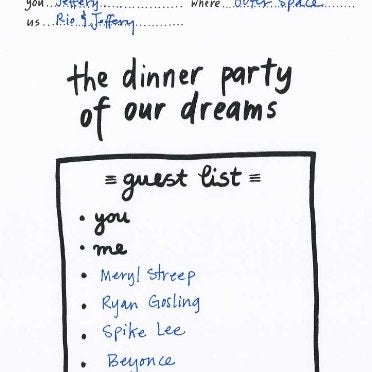 you ... Jeffery ... where ... outer space ...
us ... Rio & Jeffery ...
the dinner party
of our dreams
≡ guest list ≡
• you
• me
• Meryl Streep
• Ryan Gosling
• Spike Lee
• Beyonce